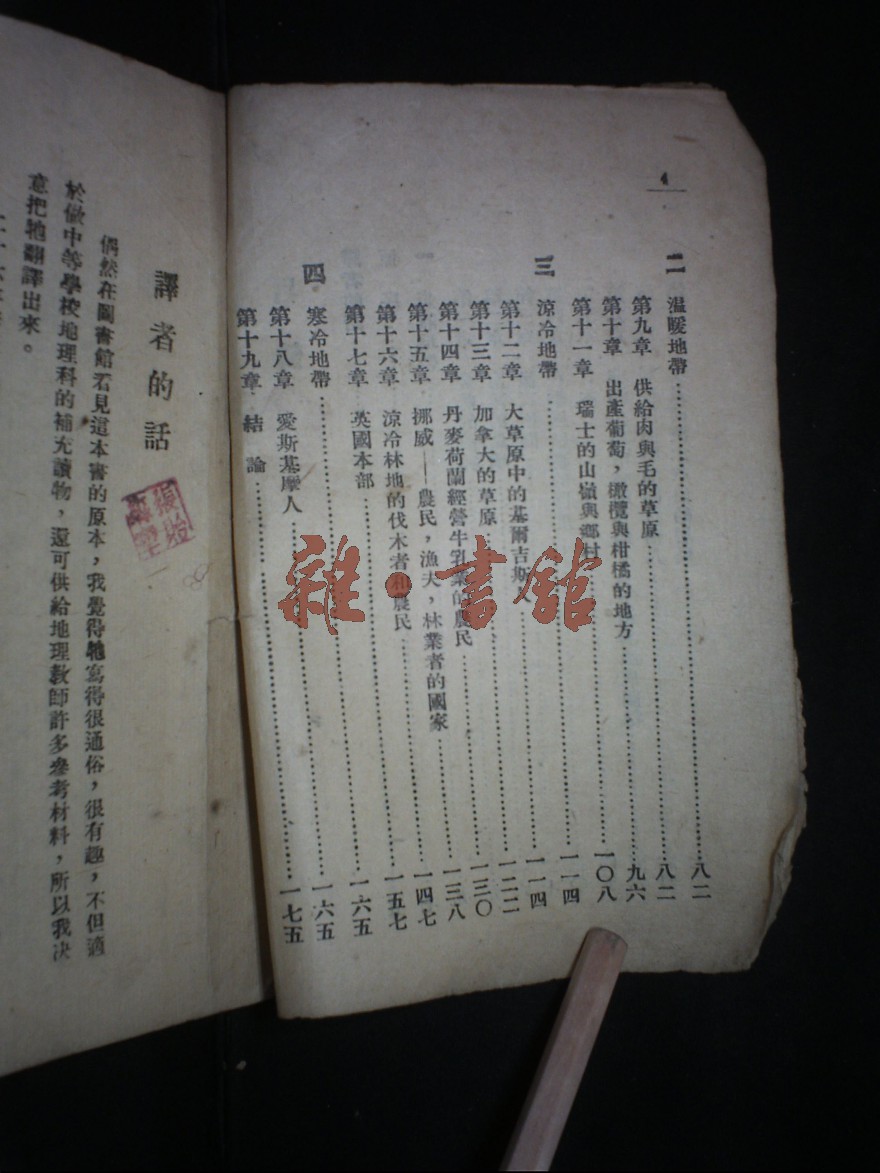 4
二 温暖地帶……八二
第九章 供給肉與毛的草原……八二
第十章 出產葡萄，橄欖與柑橘的地方……九六
第十一章 瑞士的山嶺與鄉村……一〇八
三 涼冷地帶……一一四
第十二章 大草原中的基爾吉斯人……一一四
第十三章 加拿大的草原……一二二
第十四章 丹麥荷蘭經營牛乳業的農民……一三〇
第十五章 挪威——農民，漁夫，林業者的國家……一三八
第十六章 涼冷林地的伐木者和農民……一四七
第十七章 英國本部……一五七
四 寒冷地帶……一六五
第十八章 愛斯基摩人……一六五
第十九章 結論……一七五
譯者的話
偶然在圖書館看見這本書的原本，我覺得牠寫得很通俗，很有趣，不但適
於做中等學校地理科的補充讀物，還可供給地理教師許多參考材料，所以我决
意把牠翻譯出來。
雜·書館